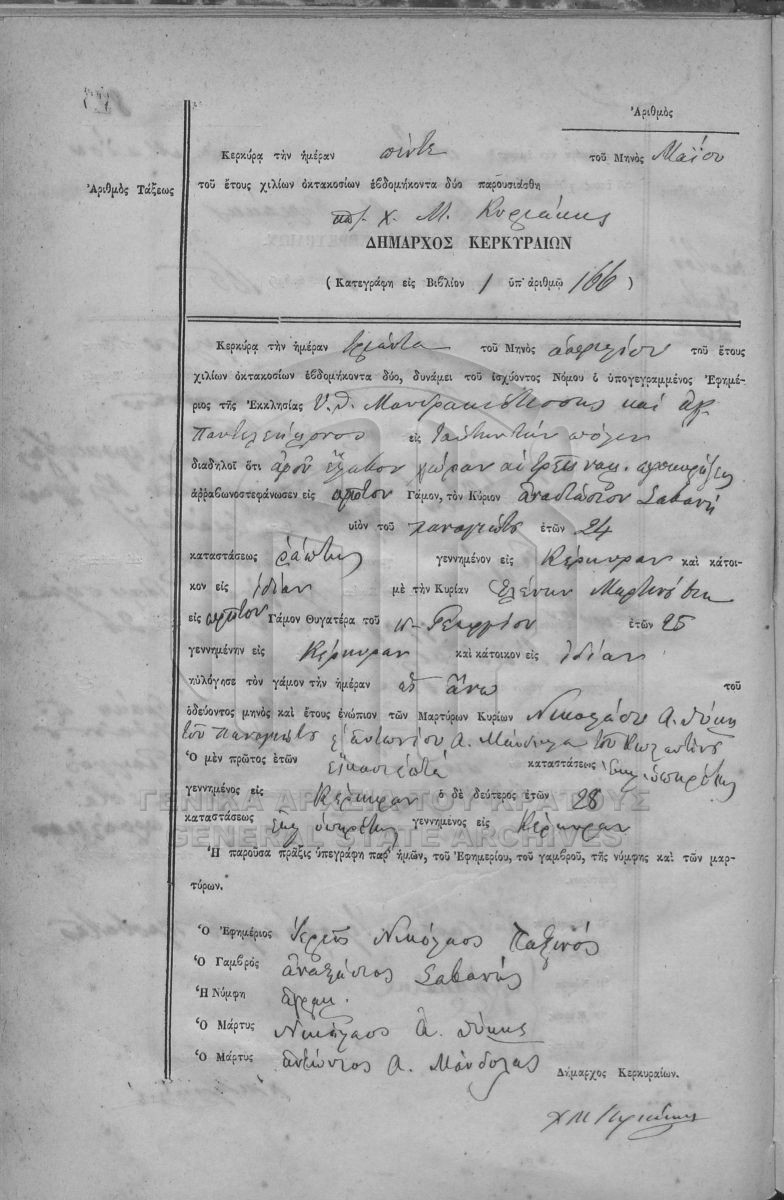 Ἀριθμὸς
Κερκύρᾳ τὴν ἡμέραν πέντε τοῦ Μηνὸς Μαΐου
Ἀριθμὸς Τάξεως
τοῦ ἔτους χιλίων ὀκτακοσίων ἑβδομήκοντα δύο παρουσιάσθη
Χ. Μ. Κυριάκης
ΔΗΜΑΡΧΟΣ ΚΕΡΚΥΡΑΙΩΝ
(Κατεγράφη εἰς Βιβλίον 1 ὑπ' ἀριθμῷ 166)
Κερκύρᾳ τὴν ἡμέραν τριάντα τοῦ Μηνὸς ἀπριλίου τοῦ ἔτους
χιλίων ὀκτακοσίων ἑβδομήκοντα δύο, δυνάμει τοῦ ἰσχύοντος Νόμου ὁ ὑπογεγραμμένος Ἐφημέ-
ριος τῆς Ἐκκλησίας Υ. Θ. Μανδρακιωτίσσης καὶ ἁγ.
Παντελεήμονος εἰς ταύτην τὴν πόλιν
διαδηλοῖ ὅτι ἀφοῦ ἔλαβον χώραν αἱ τρεῖς
ἀρραβωνοστεφάνωσεν εἰς πρῶτον Γάμον, τὸν Κύριον ἀναστάσιον Σαβανῆ
υἱὸν τοῦ παναγιώτε ἐτῶν 24
καταστάσεως ῥάπτης γεννημένον εἰς Κέρκυραν καὶ κάτοι-
κον εἰς ἰδίαν μὲ τὴν Κυρίαν Ἑλένην
εἰς πρῶτον Γάμον Θυγατέρα τοῦ π- Γεωργίου ἐτῶν 25
γεννημένην εἰς Κέρκυραν καὶ κάτοικον εἰς ἰδίαν
ηὐλόγησε τὸν γάμον τὴν ἡμέραν ὡς ἄνω τοῦ
ὁδεύοντος μηνὸς καὶ ἔτους ἐνώπιον τῶν Μαρτύρων Κυρίων Νικολάου Α.
τοῦ Παναγιώτε ἀντωνίου Α. Μάνδολα τοῦ
Ὁ μὲν πρῶτος ἐτῶν εἰκοσιεπτά καταστάσεως
γεννημένος εἰς Κέρκυραν ὁ δὲ δεύτερος ἐτῶν 28
ΓΕΝΙΚΑ ΑΡΧΕΙΑ ΤΟΥ ΚΡΑΤΟΥΣ
καταστάσεως ὑπηρέτης γεννημένος εἰς Κέρκυραν
GENERAL STATE ARCHIVES
Ἡ παροῦσα πρᾶξις ὑπεγράφη παρ' ἡμῶν, τοῦ Ἐφημερίου, τοῦ γαμβροῦ, τῆς νύμφης καὶ τῶν μαρ-
τύρων.
Ὁ Ἐφημέριος Ἱερεὺς Νικόλαος Παξινός
Ὁ Γαμβρὸς ἀναστάσιος Σαβανῆς
Ἡ Νύμφη ἀγράμ.
Ὁ Μάρτυς Νικόλαος Α.
Ὁ Μάρτυς ἀντώνιος Α. Μάνδολας
Δήμαρχος Κερκυραίων.
Χ Μ Κυριάκης